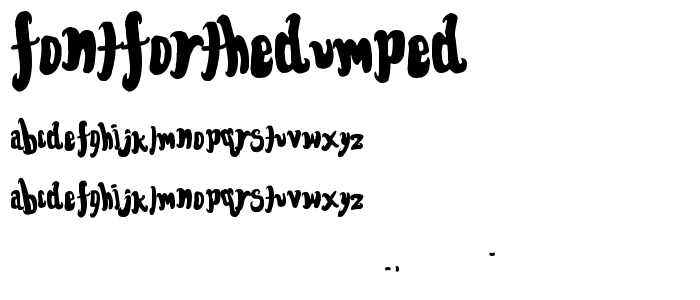 fontforthedumped
abcdefghijklmnopqrstuvwxyz
abcdefghijklmnopqrstuvwxyz
-, -